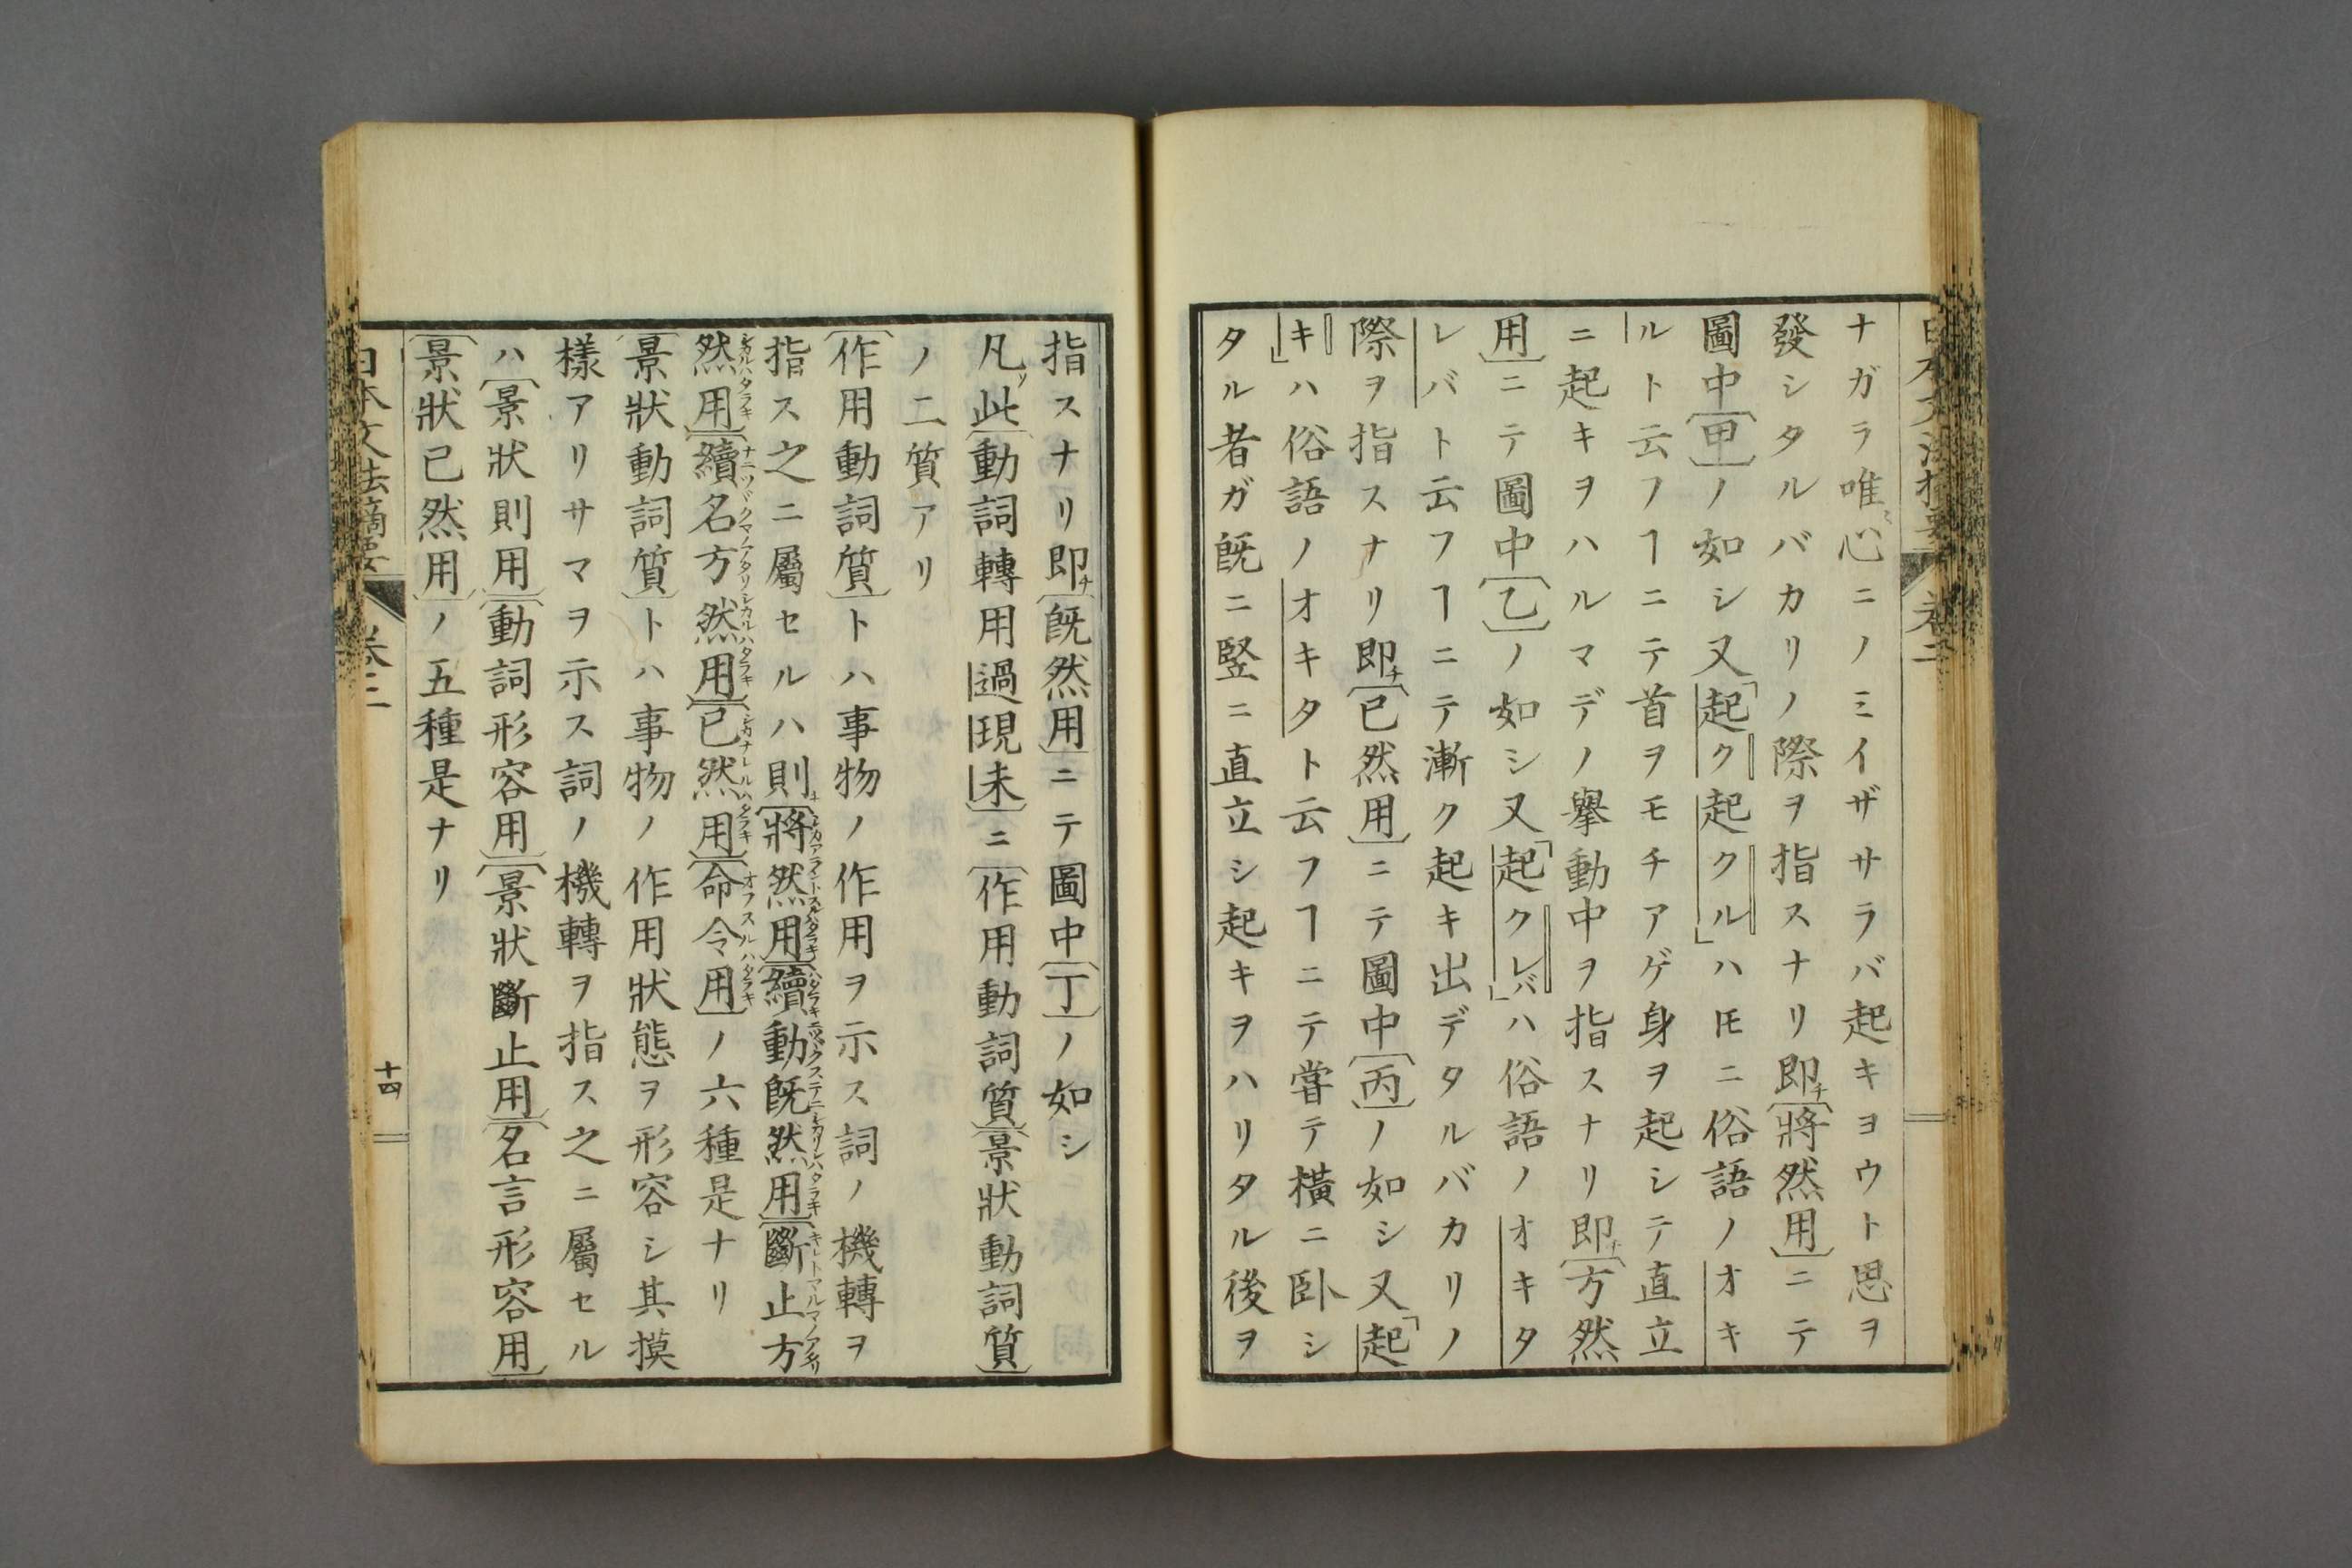 ナガラ唯心ニノミイザサラバ起キヨウト思ヲ
發シタルバカリノ際ヲ指スナリ即チ〔將然用〕ニテ
圖中〔甲〕ノ如シ又「起ク起クル」ハ𪜈ニ俗語ノオキ
ルト云フヿニテ首ヲモチアゲ身ヲ起シテ直立
ニ起キヲハルマデノ擧動中ヲ指スナリ即チ〔方然
用〕ニテ圖中〔乙〕ノ如シ又「起クレバ」ハ俗語ノオキタ
レバト云フヿニテ漸ク起キ出デタルバカリノ
際ヲ指スナリ即チ〔已然用〕ニテ圖中〔丙〕ノ如シ又「起
キ」ハ俗語ノオキタト云フヿニテ嘗テ橫ニ臥シ
タル者ガ既ニ竪ニ直立シ起キヲハリタル後ヲ
指スナリ即チ〔既然用〕ニテ圖中〔丁〕ノ如シ
凡ソ此〔動詞轉用過現未〕ニ〔作用動詞質〕〔景狀動詞質〕
ノ二質アリ
〔作用動詞質〕トハ事物ノ作用ヲ示ス詞ノ機轉ヲ
指ス之ニ屬セルハ則チ〔將然用〕〔續動既然用〕〔斷止方
然用〕〔續名方然用〕〔已然用〕〔命令用〕ノ六種是ナリ
〔景狀動詞質〕トハ事物ノ作用狀態ヲ形容シ其摸
樣アリサマヲ示ス詞ノ機轉ヲ指ス之ニ屬セル
ハ〔景狀則用〕〔動詞形容用〕〔景狀斷止用〕〔名言形容用〕
〔景狀已然用〕ノ五種是ナリ
日本文法摘要
卷二
十四